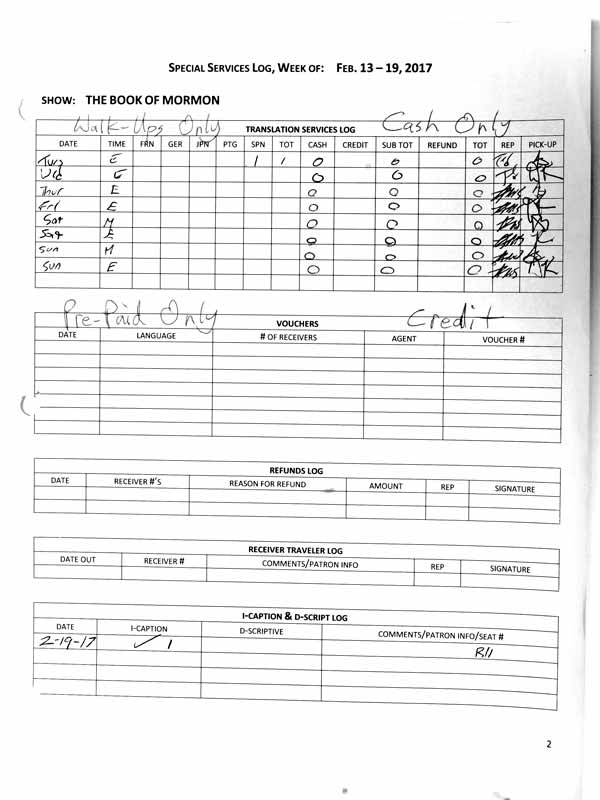 SPECIAL SERVICES LOG, WEEK OF: FEB. 13 – 19, 2017
SHOW: THE BOOK OF MORMON
Walk-Ups Only TRANSLATION SERVICES LOG Cash Only
DATE TIME FRN GER JPN PTG SPN TOT CASH CREDIT SUB TOT REFUND TOT REP PICK-UP
Tues E 1 1 0 0 0
Wed E 0 0 0
Thur E 0 0 0
Fri E 0 0 0
Sat M 0 0 0
Sat E 0 0 0
Sun M 0 0 0
Sun E 0 0 0
Pre-Paid Only VOUCHERS Credit
DATE LANGUAGE # OF RECEIVERS AGENT VOUCHER #
REFUNDS LOG
DATE RECEIVER #'S REASON FOR REFUND AMOUNT REP SIGNATURE
RECEIVER TRAVELER LOG
DATE OUT RECEIVER # COMMENTS/PATRON INFO REP SIGNATURE
I-CAPTION & D-SCRIPT LOG
DATE I-CAPTION D-SCRIPTIVE COMMENTS/PATRON INFO/SEAT #
2-19-17 ✓ 1 R11
2